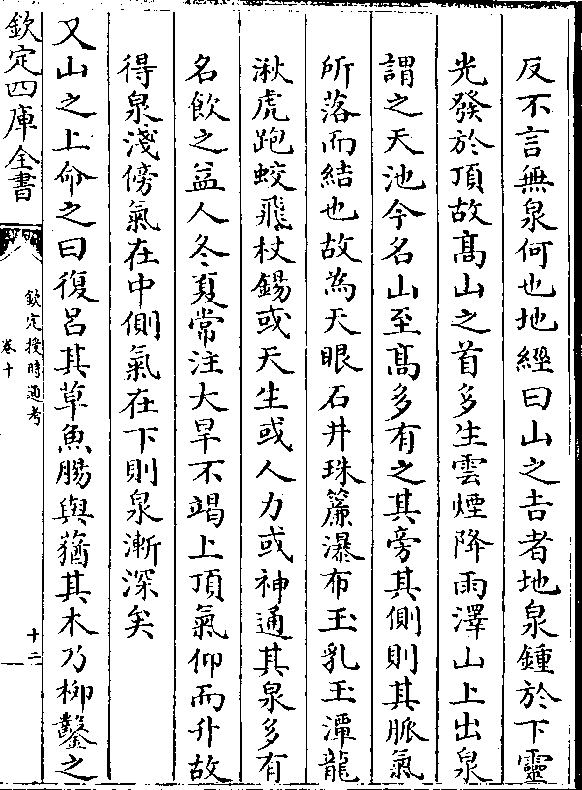 反不言無泉何也地經曰山之吉者地泉鍾於下靈
光發於頂故髙山之首多生雲煙降雨澤山上出泉
謂之天池今名山至髙多有之其旁其側則其脈氣
所落而結也故為天眼石井珠簾瀑布玉乳玉潭龍
湫虎跑蛟飛杖錫或天生或人力或神通其泉多有
名飲之益人冬夏常注大旱不竭上頂氣仰而升故
得泉淺傍氣在中側氣在下則泉漸深矣
又山之上命之曰復吕其草魚腸與蕕其木乃柳鑿之
欽定四庫全書
欽定授時通考
卷十
十二